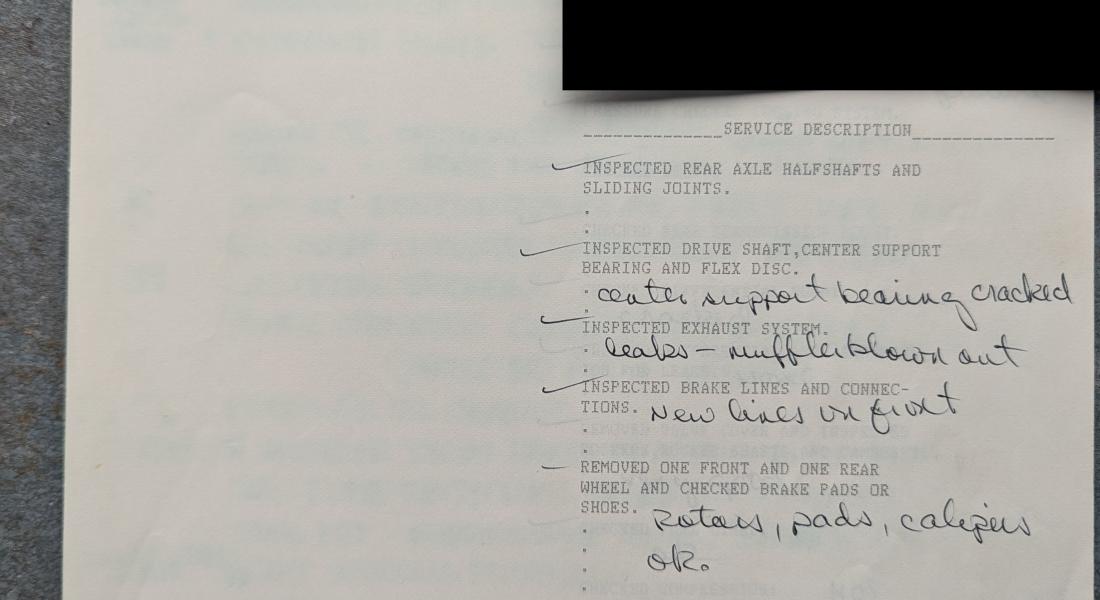 ______________SERVICE DESCRIPTION______________
INSPECTED REAR AXLE HALFSHAFTS AND
SLIDING JOINTS.
.
.
INSPECTED DRIVE SHAFT,CENTER SUPPORT
BEARING AND FLEX DISC.
. center support bearing cracked
.
INSPECTED EXHAUST SYSTEM.
. leaks – muffler blown out
.
INSPECTED BRAKE LINES AND CONNEC-
TIONS. New lines on front
.
.
REMOVED ONE FRONT AND ONE REAR
WHEEL AND CHECKED BRAKE PADS OR
SHOES. Rotors, pads, calipers
.
. ok.
.
.